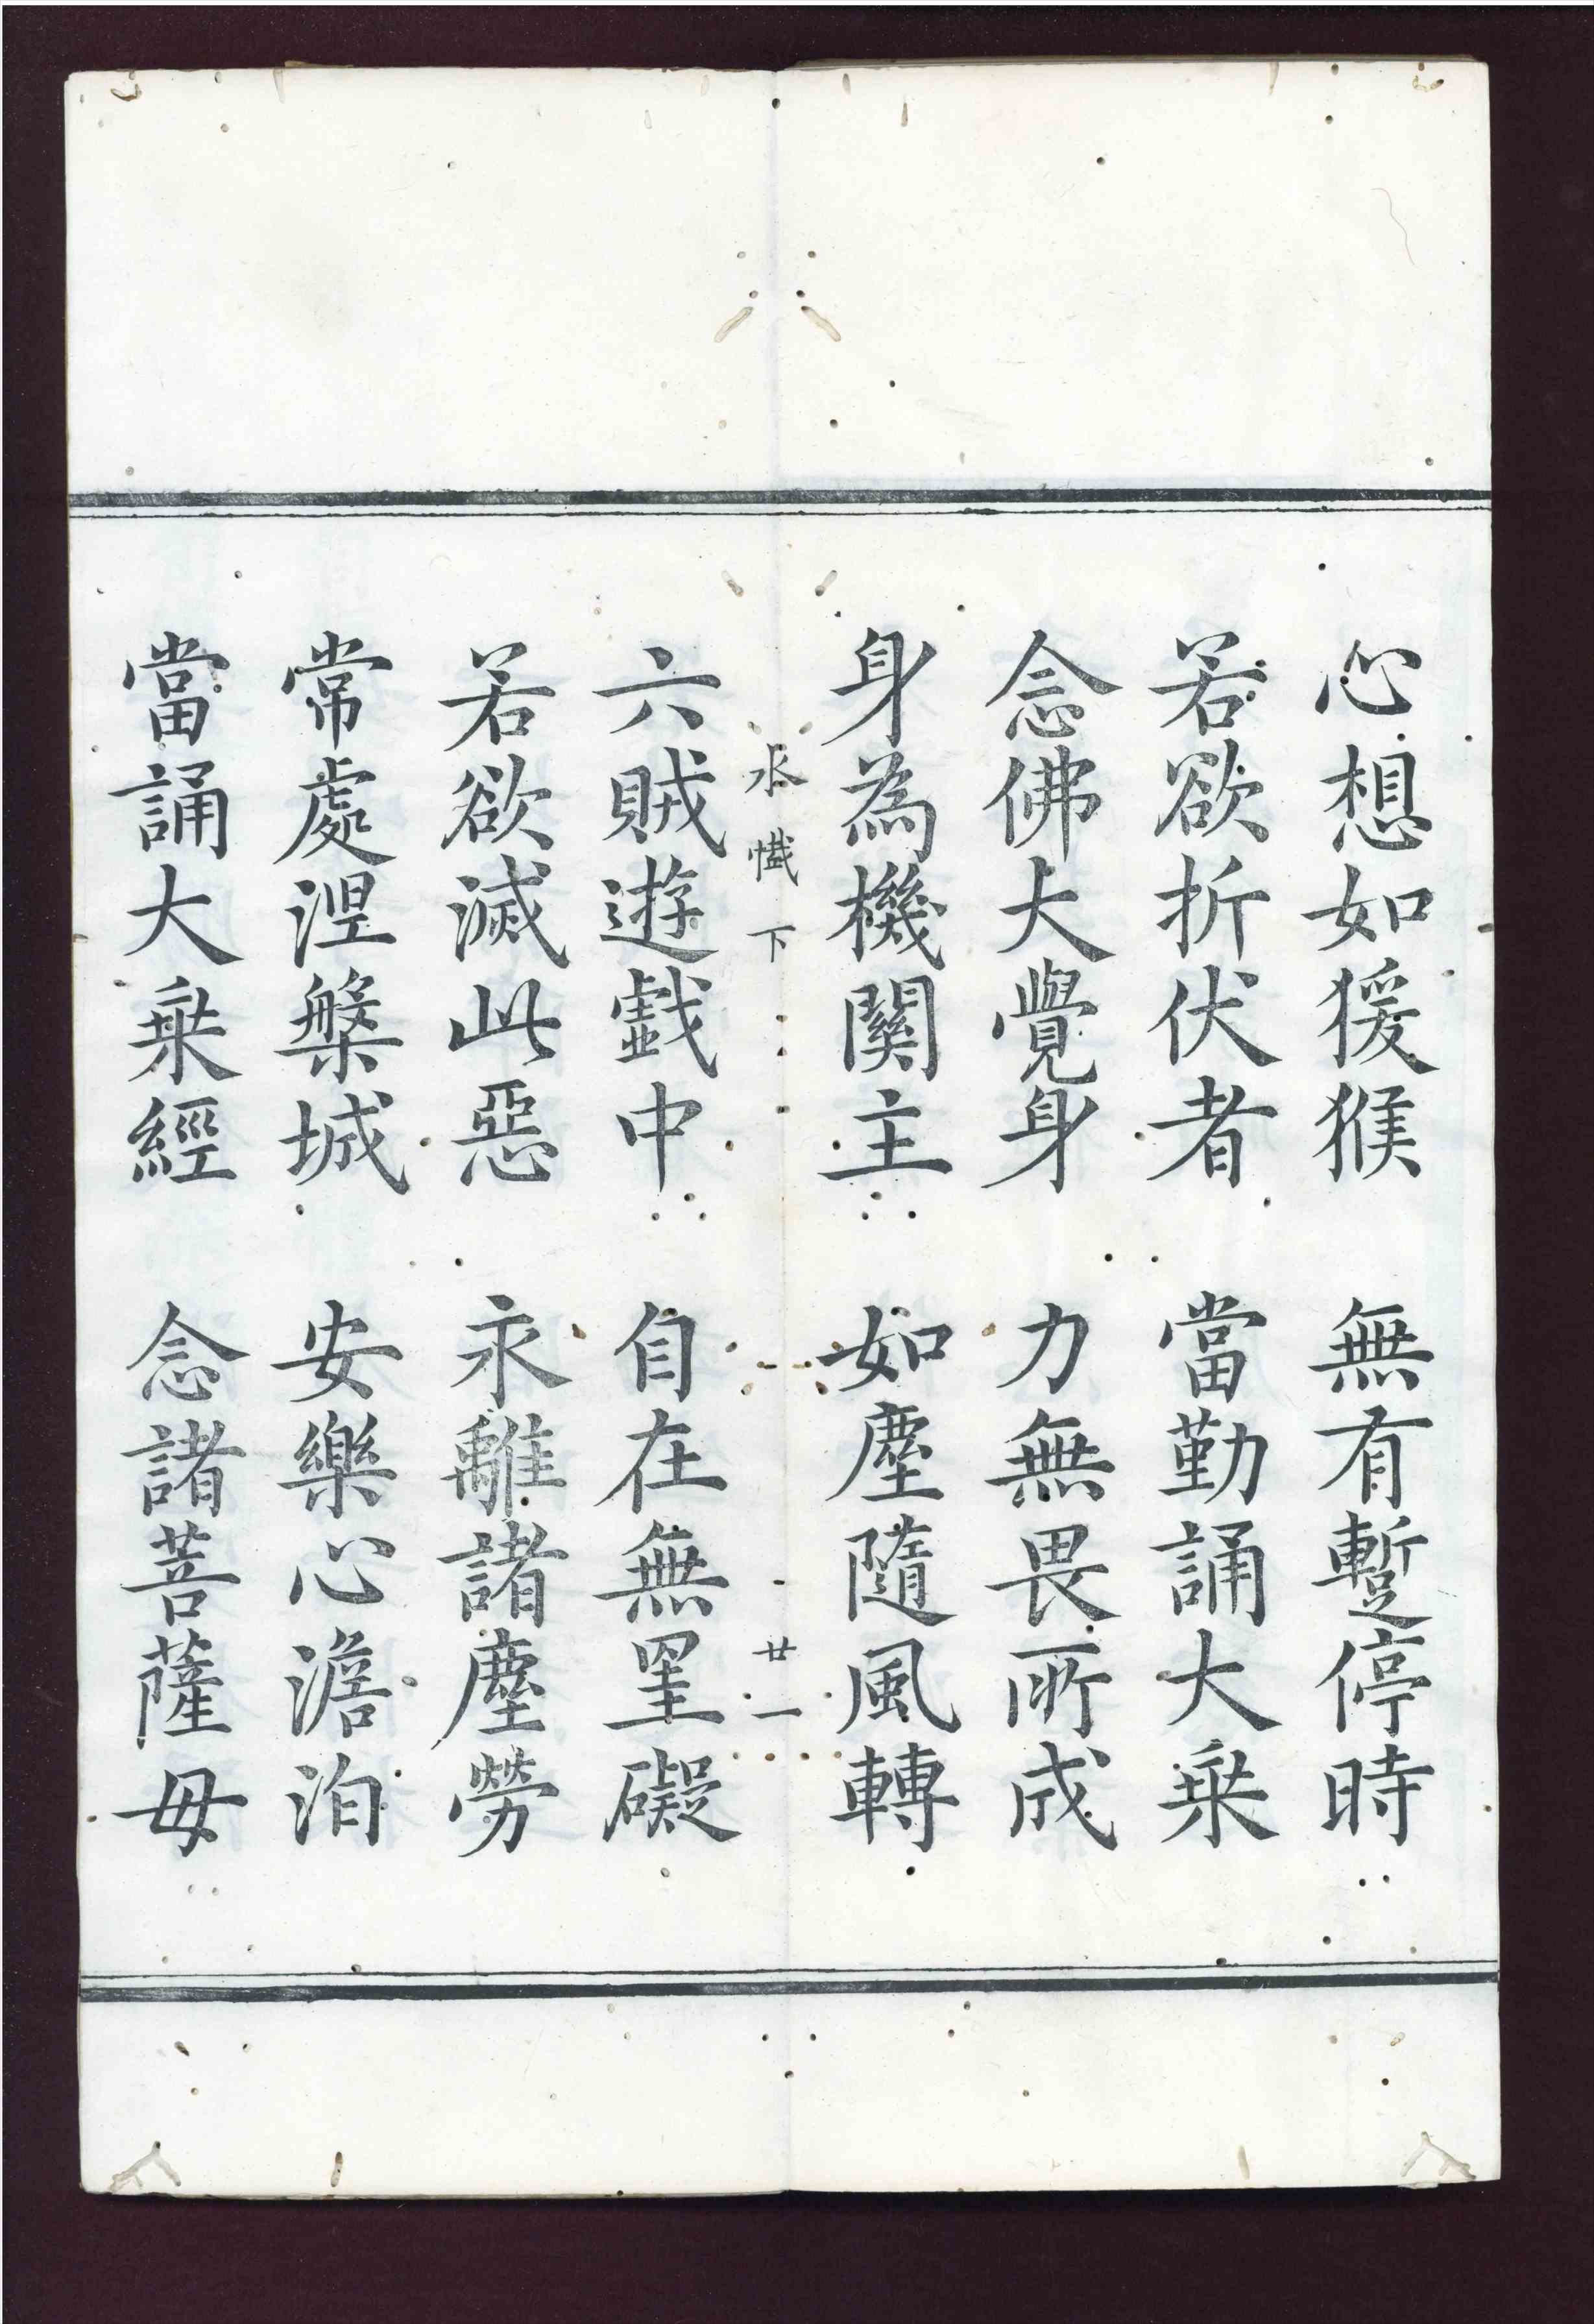 心想如猨猴　無有蹔停時
若欲折伏者　當勤誦大乗
念佛大覺身　力無畏所成
身為機關主　如塵隨風轉
水懺下　廿一
六賊遊戯中　自在無罣礙
若欲滅此惡　永離諸塵勞
常處涅槃城　安樂心澹泊
當誦大乗經　念諸菩薩母